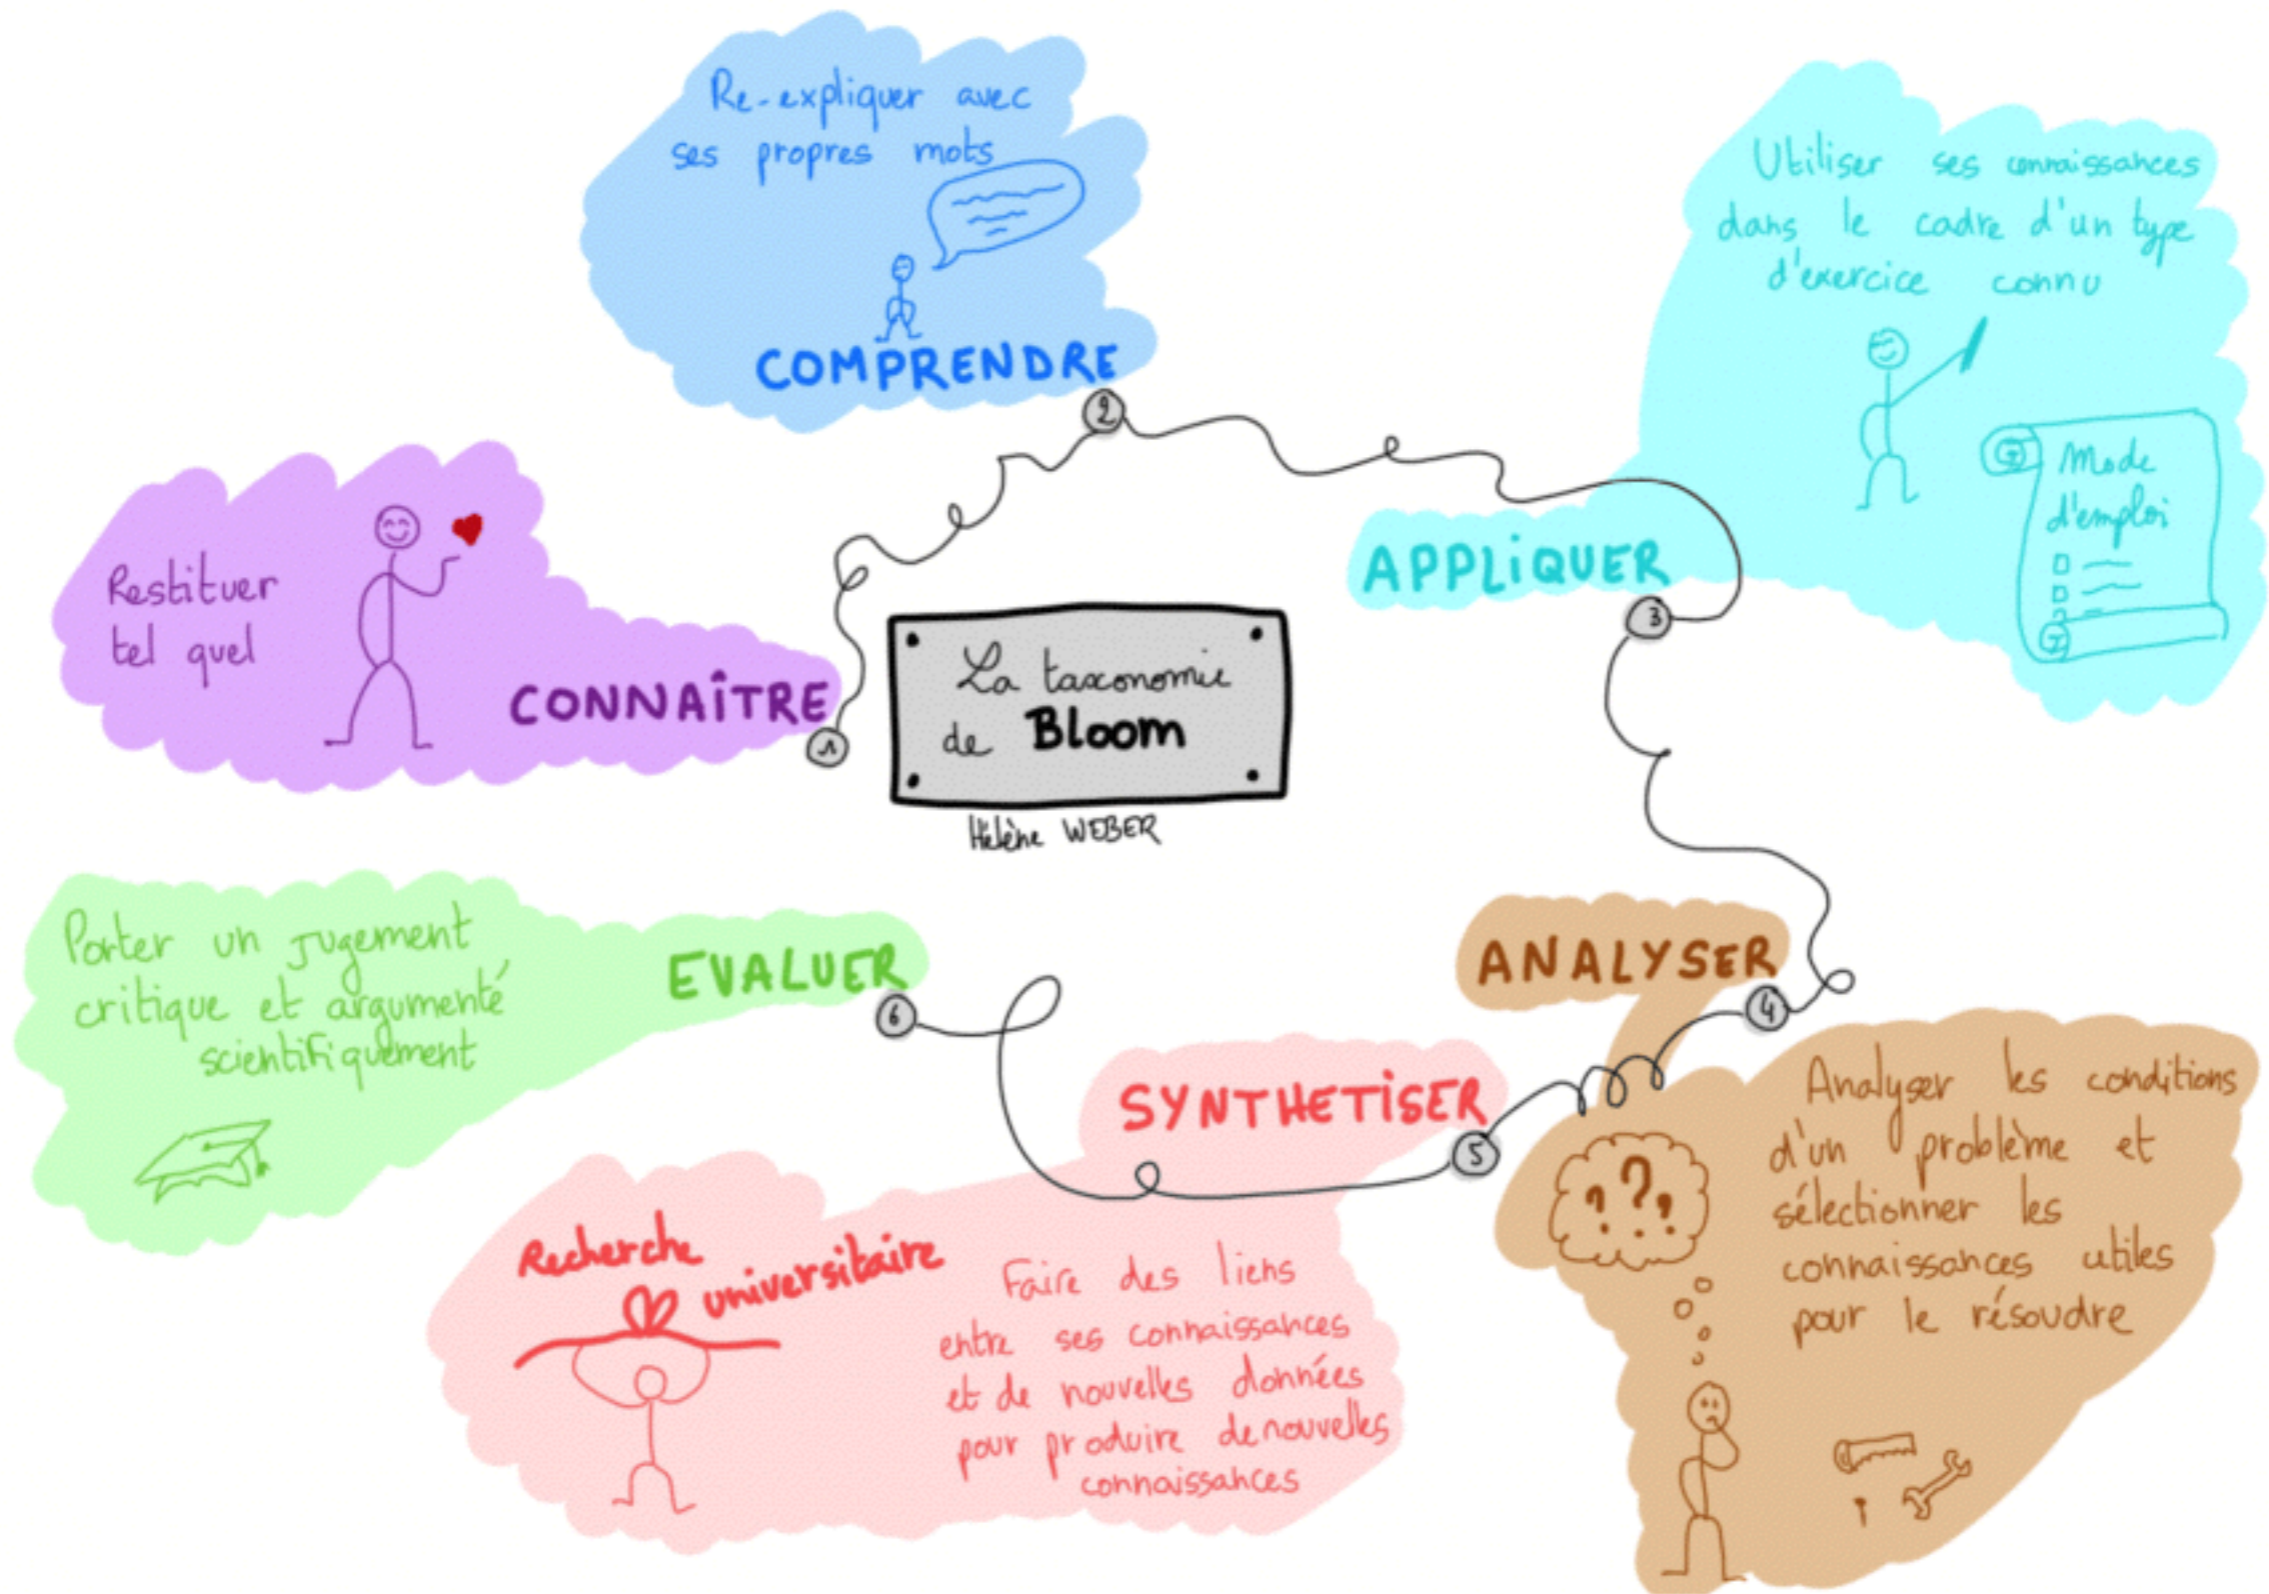 La taxonomie
de Bloom
Hélène WEBER
Restituer
tel quel
CONNAÎTRE
1
Re-expliquer avec
ses propres mots
COMPRENDRE
2
Utiliser ses connaissances
dans le cadre d'un type
d'exercice connu
Mode
d'emploi
APPLIQUER
3
ANALYSER
4
Analyser les conditions
d'un problème et
sélectionner les
connaissances utiles
pour le résoudre
? ? ?
SYNTHETISER
5
Recherche
universitaire
Faire des liens
entre ses connaissances
et de nouvelles données
pour produire de nouvelles
connaissances
EVALUER
6
Porter un jugement
critique et argumenté
scientifiquement